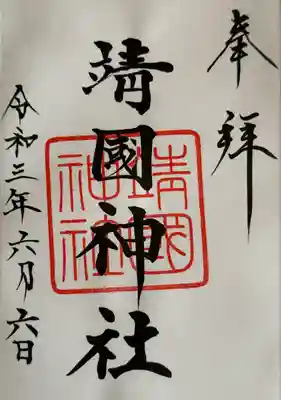 奉拝
靖國神社
靖國神社
令和三年六月六日